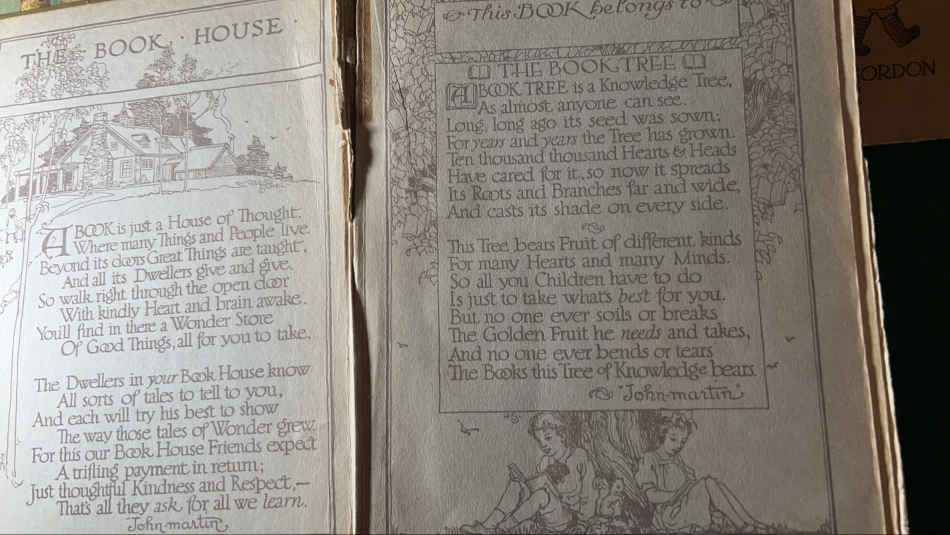 THE · BOOK · HOUSE ·
A BOOK is just a House of Thought;
Where many Things and People live.
Beyond its doors Great Things are taught,
And all its Dwellers give and give.
So walk right through the open door
With kindly Heart and brain awake.
You'll find in there a Wonder Store
Of Good Things, all for you to take.
The Dwellers in your Book House know
All sorts of tales to tell to you,
And each will try his best to show
The way those tales of Wonder grew.
For this our Book House Friends expect
A trifling payment in return;
Just thoughtful Kindness and Respect,—
That's all they ask for all we learn.
John-martin
This BOOK belongs to
THE BOOK TREE
A BOOK TREE is a Knowledge Tree,
As almost anyone can see.
Long, long ago its seed was sown;
For years and years the Tree has grown.
Ten thousand thousand Hearts & Heads
Have cared for it, so now it spreads
Its Roots and Branches far and wide,
And casts its shade on every side.
This Tree bears Fruit of different kinds
For many Hearts and many Minds.
So all you Children have to do
Is just to take what's best for you.
But no one ever soils or breaks
The Golden Fruit he needs and takes,
And no one ever bends or tears
The Books this Tree of Knowledge bears.
"John-martin"
GORDON